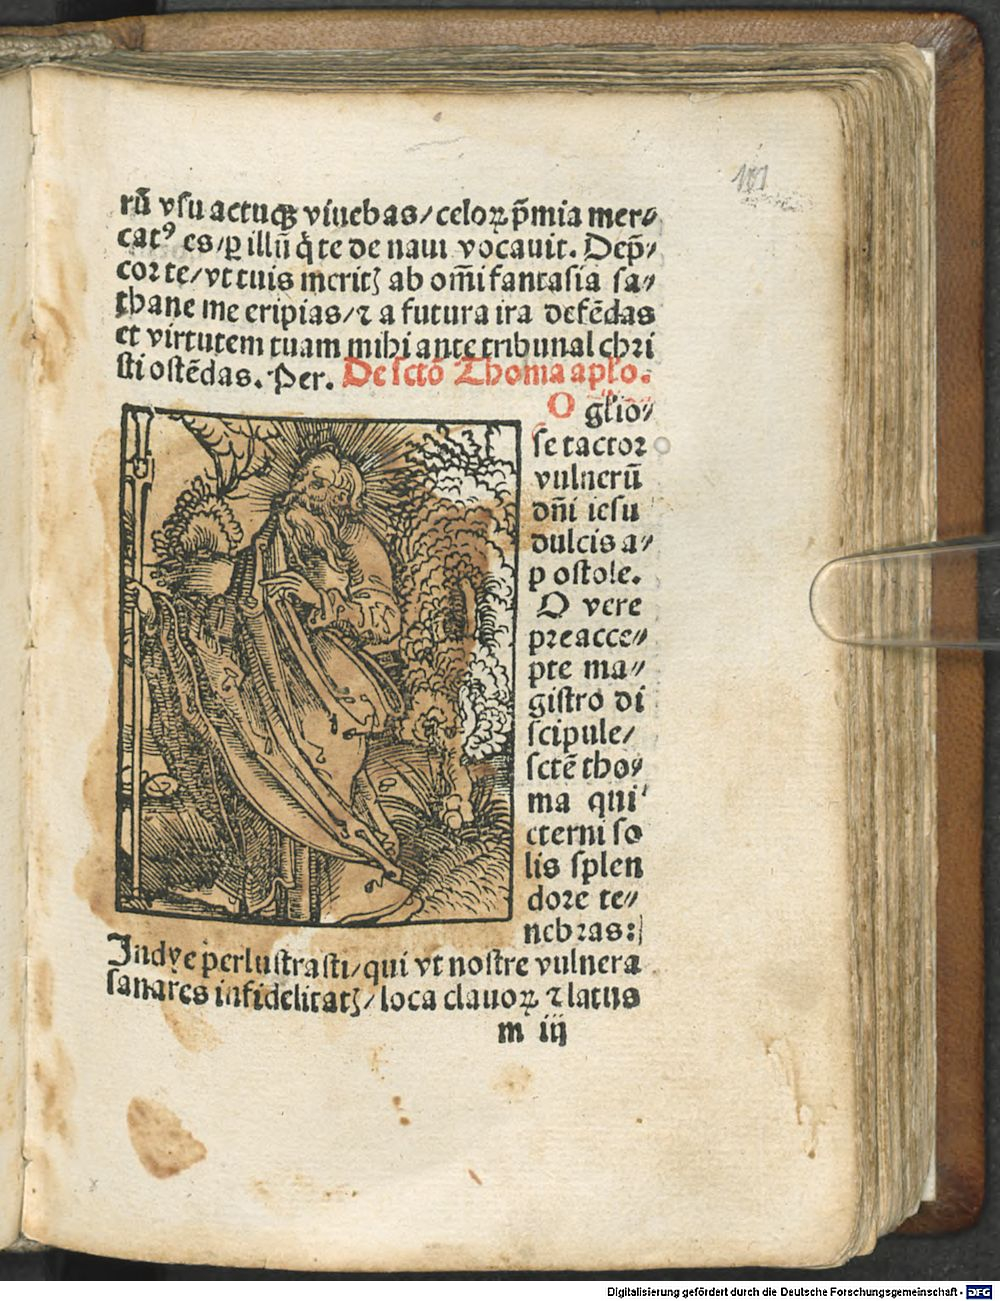 101
rū vsu actuqꝫ viuebas/celoꝝ p̄mia mer⸗
catꝰ es/ꝑ illū q̇ te de naui vocauit. Dep̄⸗
cor te/vt tuis meritꝫ ab om̄i fantasia sa⸗
thane me eripias/⁊ a futura ira defēdas
et virtutem tuam mihi ante tribunal chri
sti ostēdas. Per. De sctō Thoma aplo.
O glio⸗
se tactor
vulnerū
dn̄i iesu
dulcis a⸗
p ostole.
O vere
preacce⸗
pte ma⸗
gistro di
scipule/
sctē tho⸗
ma qui
eterni so
lis splen
dore te⸗
nebras:
Indye perlustrasti/qui vt nostre vulnera
sanares infidelitatꝫ/loca clauoꝝ ⁊ latus
m iij
Digitalisierung gefördert durch die Deutsche Forschungsgemeinschaft - DFG